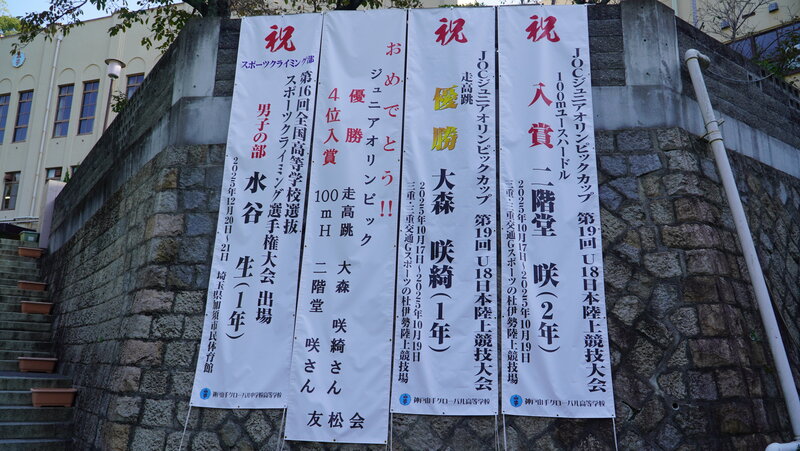 祝
JOCジュニアオリンピックカップ 第19回 U18日本陸上競技大会
100mユースハードル
入賞 二階堂 咲(2年)
2025年10月17日〜2025年10月19日
三重:三重交通Gスポーツの杜伊勢陸上競技場
神戸山手グローバル高等学校
祝
JOCジュニアオリンピックカップ 第19回 U18日本陸上競技大会
走高跳
優勝 大森 咲綺(1年)
2025年10月17日〜2025年10月19日
三重:三重交通Gスポーツの杜伊勢陸上競技場
神戸山手グローバル高等学校
おめでとう!!
ジュニアオリンピック
優勝 走高跳 大森 咲綺さん
4位入賞 100mH 二階堂 咲さん
友松会
祝
スポーツクライミング部
第16回全国高等学校選抜
スポーツクライミング選手権大会 出場
男子の部 水谷 生(1年)
2025年12月20日〜21日 埼玉県加須市民体育館
神戸山手グローバル中学校高等学校